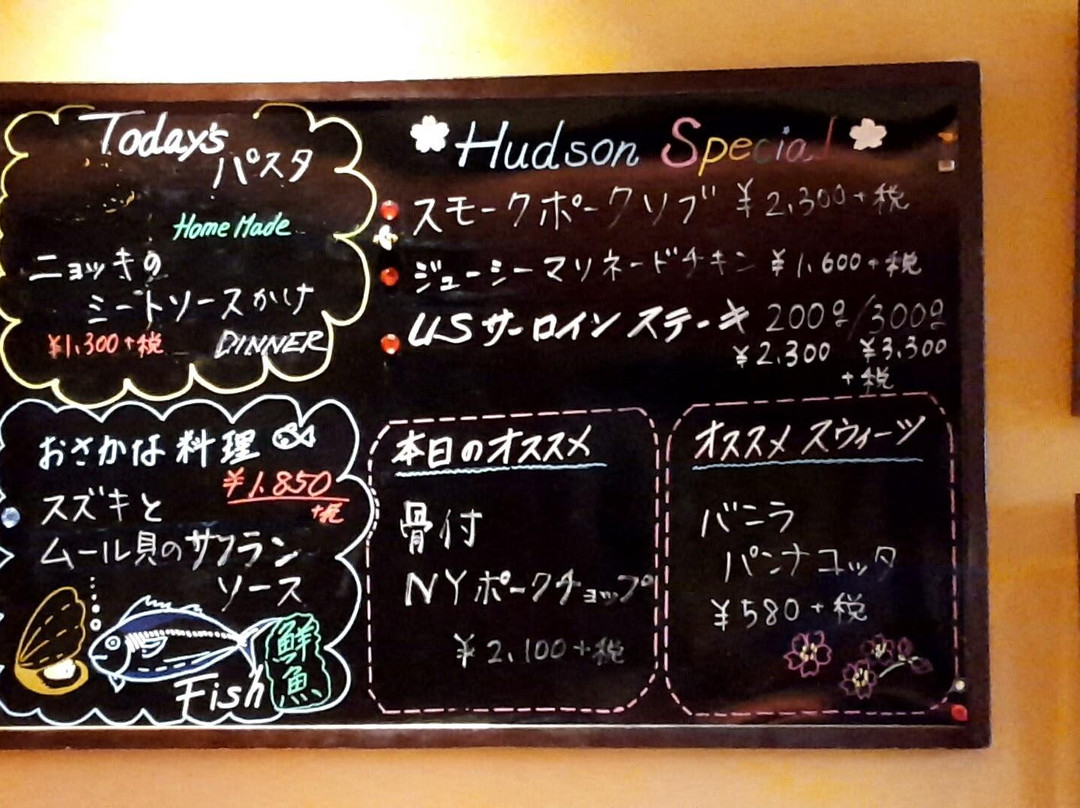 Today's
パスタ
Home Made
ニョッキの
ミートソースかけ
¥1,300+税 DINNER
おさかな料理
¥1.850
+税
スズキと
ムール貝のサフラン
ソース
鮮魚
Fish
Hudson Special
スモークポークリブ ¥2,300+税
ジューシーマリネードチキン ¥1,600+税
USサーロインステーキ 200g/300g
¥2.300 ¥3.300
+税
本日のオススメ
骨付
NYポークチョップ
¥2,100+税
オススメ スウィーツ
バニラ
パンナコッタ
¥580+税